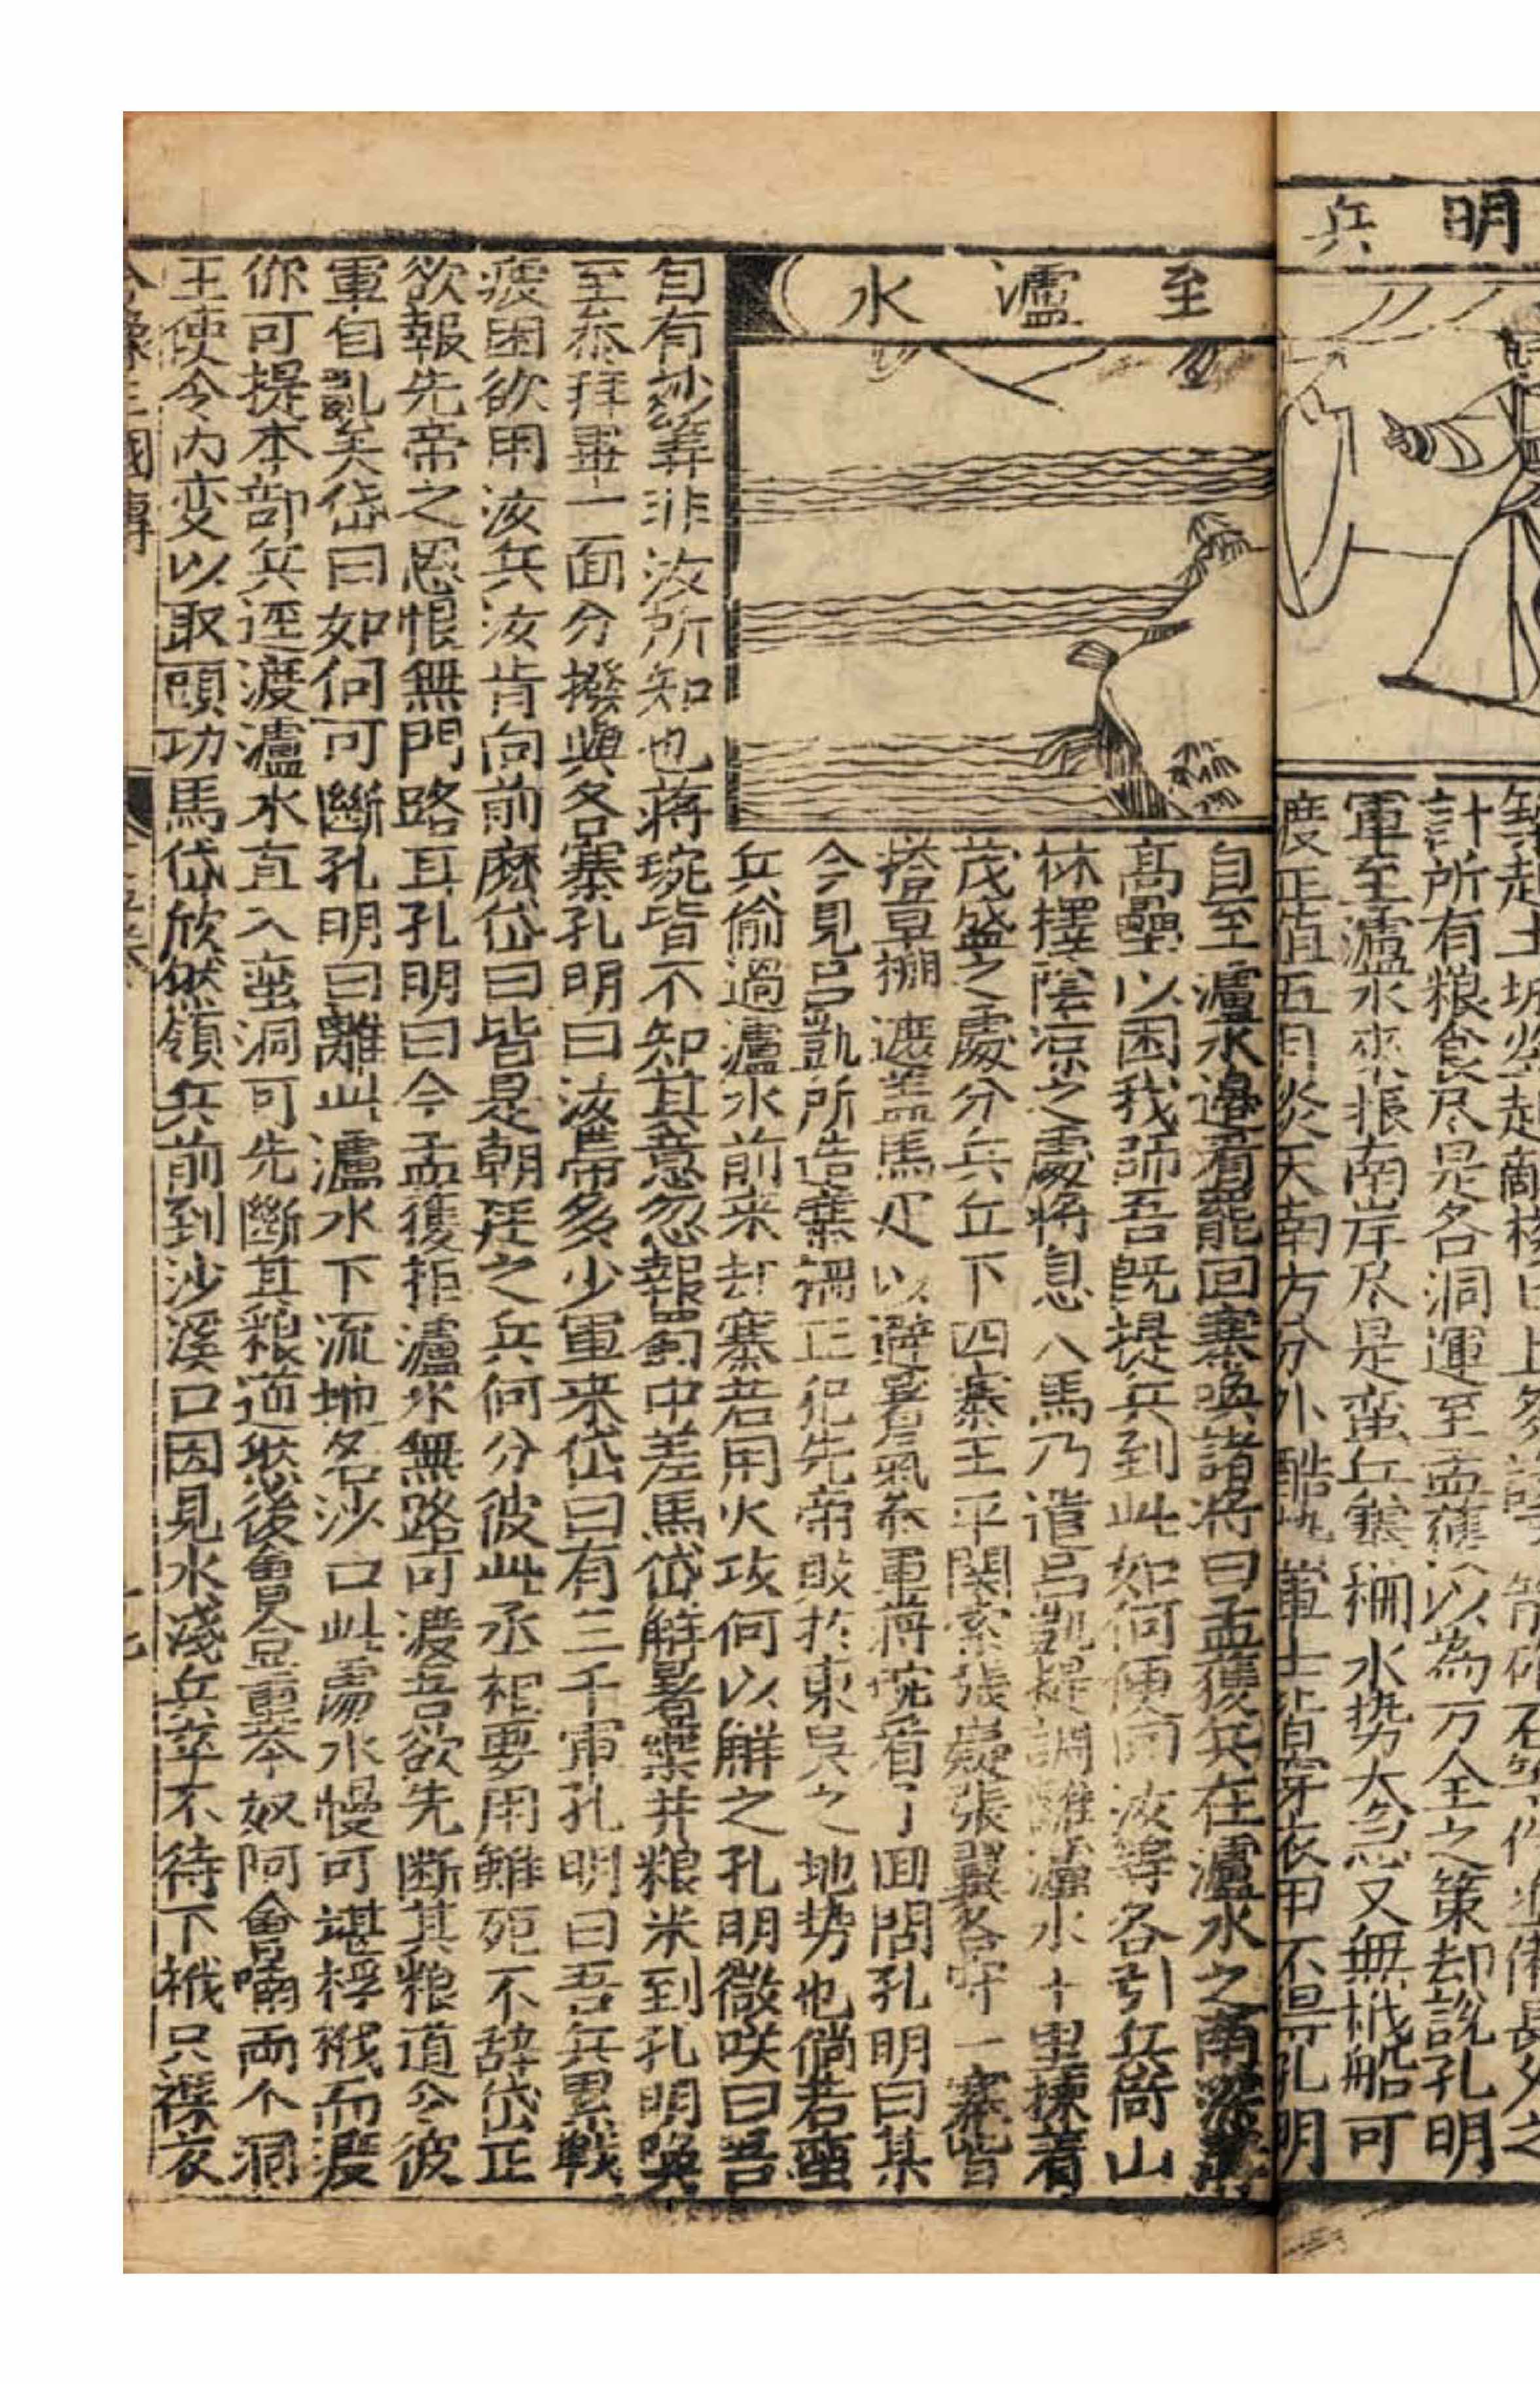 明兵
計所有粮食尽是各洞運至孟獲以為万全之策却説孔明
軍至瀘水來報南岸尽是蛮兵寨柵水势大急又無栰船可
度正值五月炎天南方分外酷熱軍士皆穿衣甲不得孔明
至瀘水
自至瀘水邉看罷回寨喚諸将曰孟獲兵在瀘水之南深溝
高壘以困我師吾既提兵到此如何便回汝等各引兵倚山
林擇陰凉之處将息人馬乃遣吕凱提調離瀘水十里揀着
茂盛之處分兵丘下四寨王平関索張嶷張翼各守一寨皆
搭草棚遮盖馬疋以避暑氣叅軍蒋琬看了囬問孔明曰某
今見吕凱所造寨柵正犯先帝敗扵東吳之地势也倘若蛮
兵偷過瀘水前来刼寨若用火攻何以解之孔明微咲曰吾
自有妙筭非汝所知也蒋琬皆不知其意忽報蜀中差馬岱解暑藥并粮米到孔明喚
至叅拜畢一面分撥與各寨孔明曰汝帯多少軍来岱曰有三千軍孔明曰吾兵累戦
疲困欲用汝兵汝肯向前麽岱曰皆是朝廷之兵何分彼此丞相要用雖死不辞岱正
欲報先帝之恩恨無門路耳孔明曰今孟獲拒瀘水無路可渡吾欲先断其粮道令彼
軍自乱矣岱曰如何可斷孔明曰離此瀘水下流地名沙口此處水慢可堪桴栰而渡
你可提本部兵逕渡瀘水直入蛮洞可先斷其粮道然後會合董荼奴阿會喃両个洞
王使令内变以取頭功馬岱欣然領兵前到沙溪口因見水淺兵卒不待下栰只裸衣